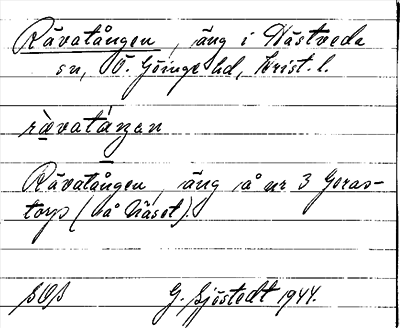 Rävatången, äng i Hästveda
sn, Ö. Göinge hd, Krist. l.
rävatåŋən
Rävatången, äng å nr 3 Goras-
torp (på Näset).
SOS G. Sjöstedt 1944.